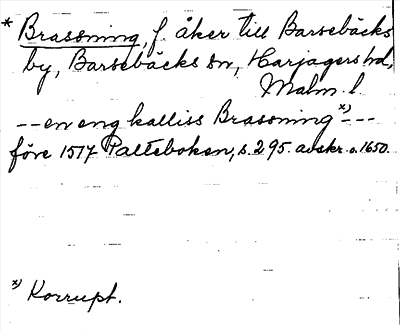 * Brassning, f. åker till Barsebäcks
by, Barsebäcks sn, Harjagers hd,
Malm. l.
-- en eng kalliss Brassning x) --
före 1517 Palteboken, s. 295. avskr. o. 1650.
x) Korrupt.